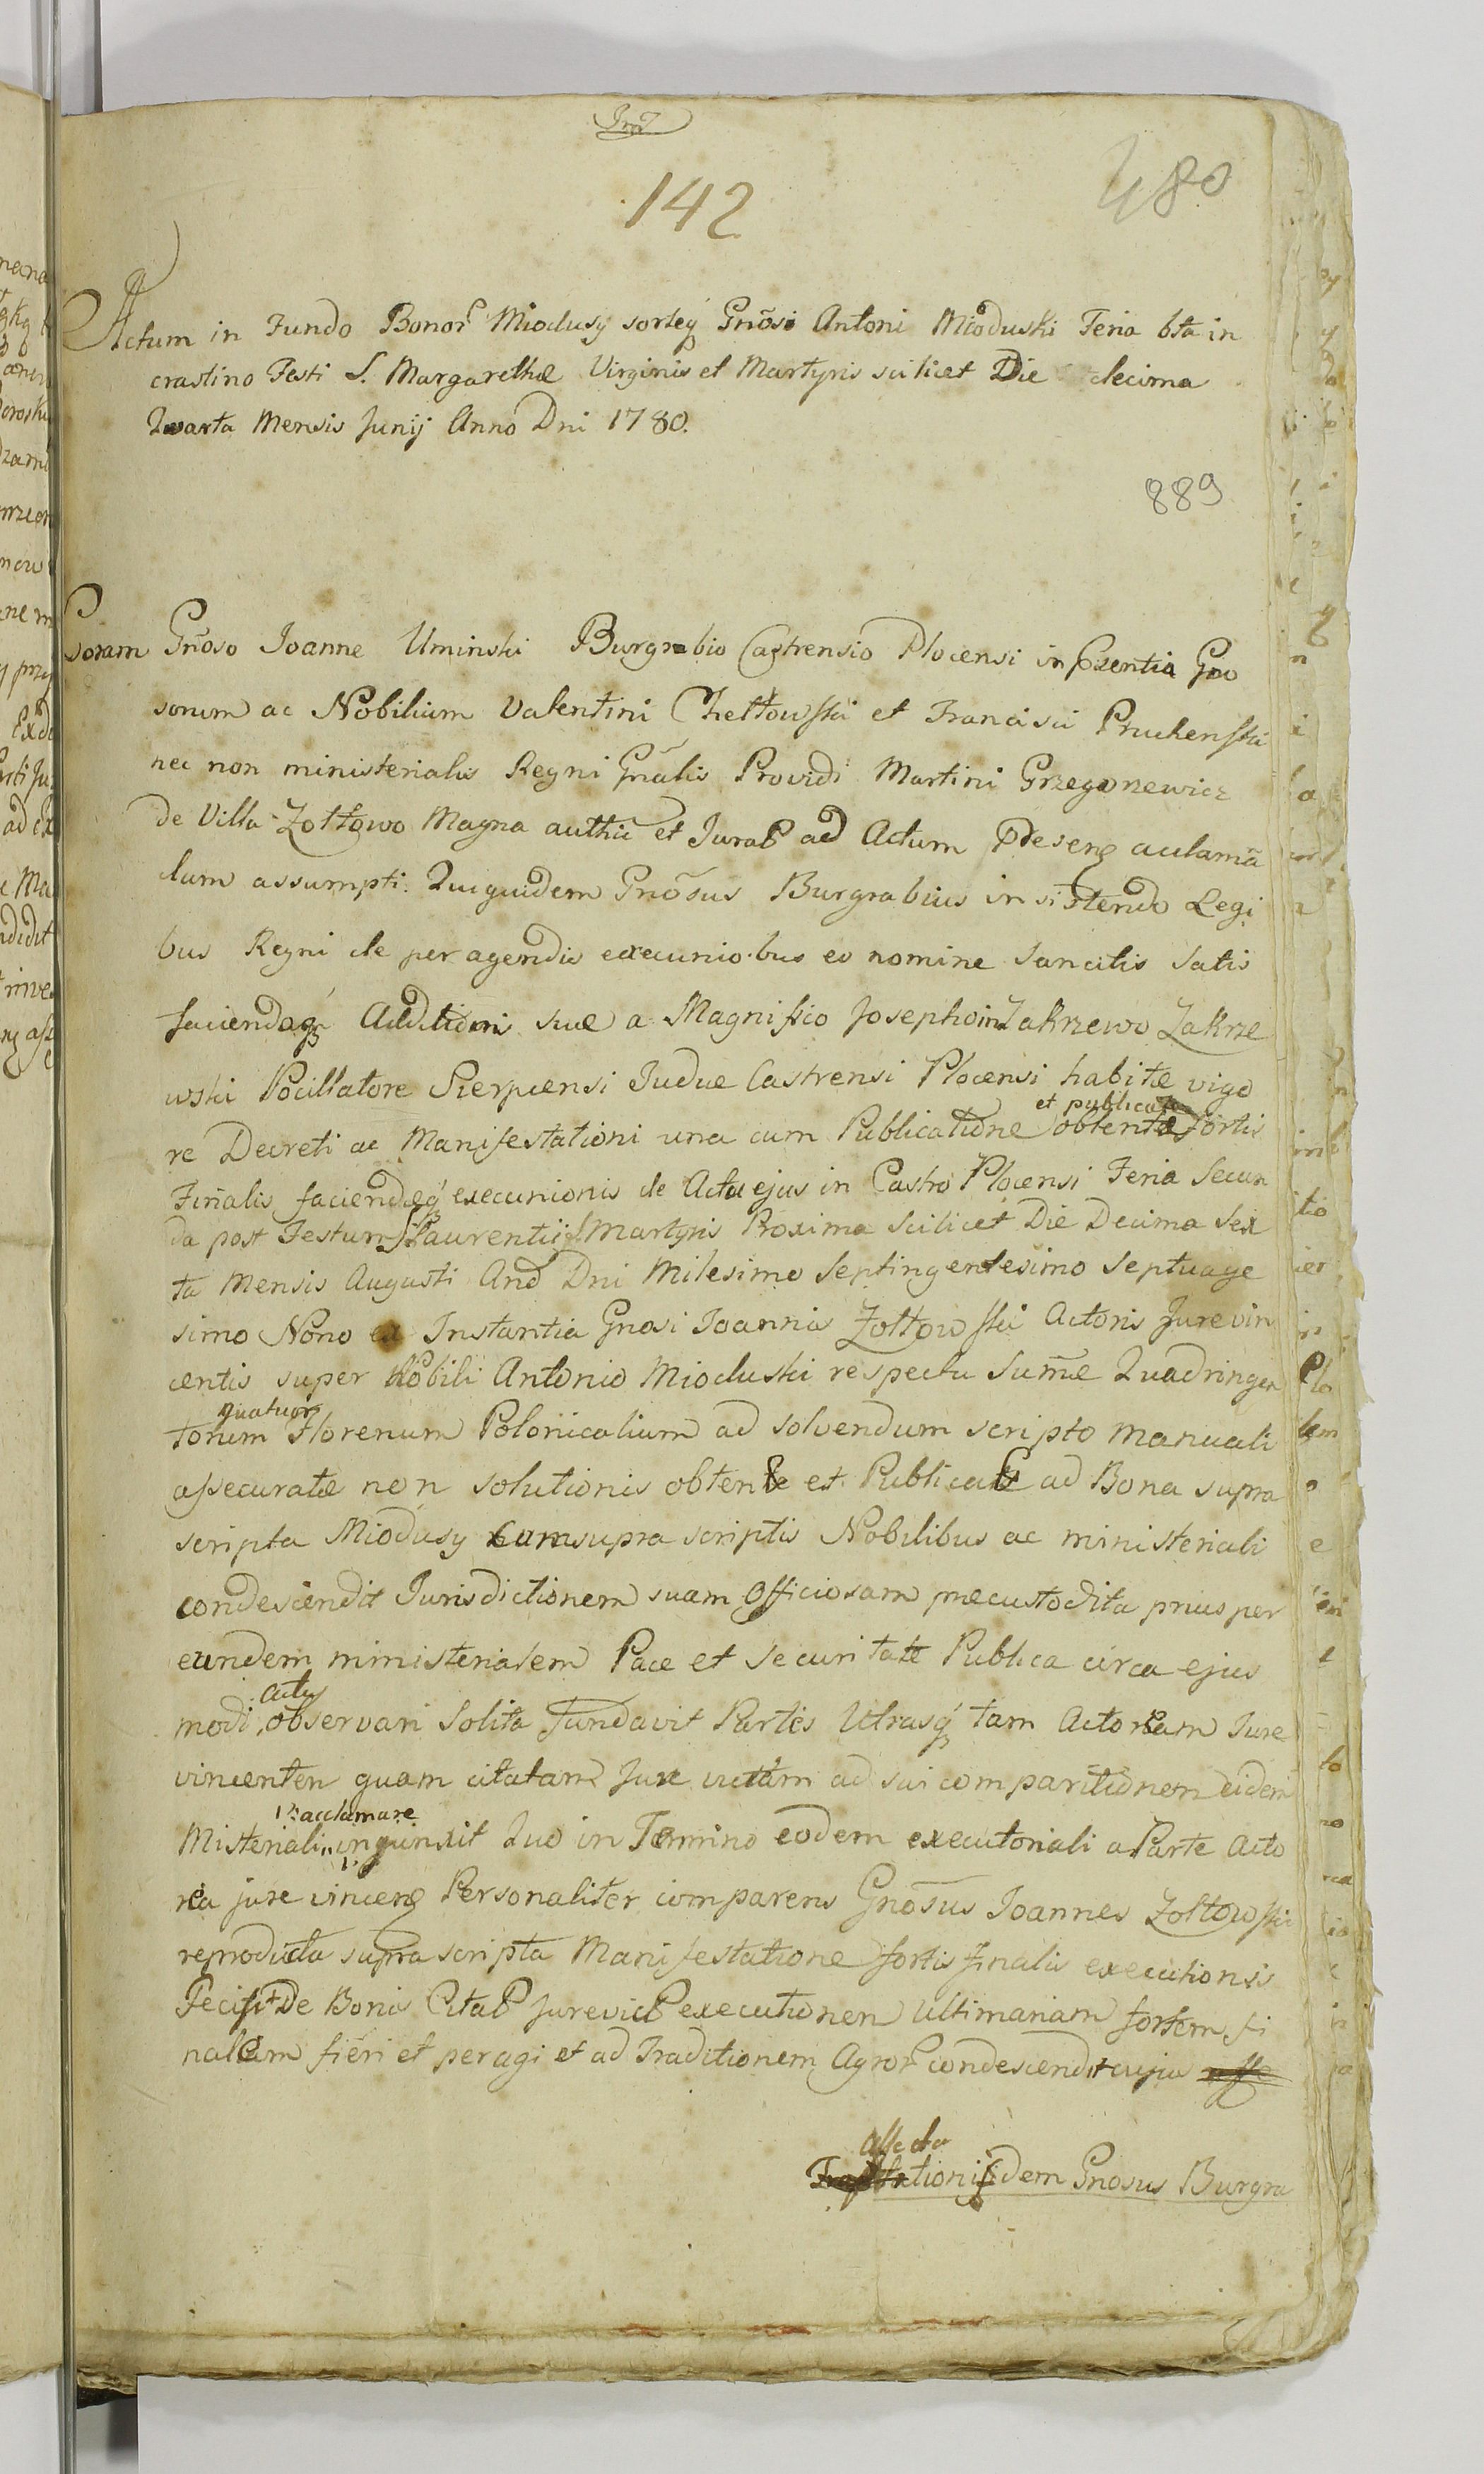 142
480
Actum in Fundo Bonor Miodusy sorteq Gnosi Antoni Mioduski Feria 6ta in
crastino Festi S. Margarethæ Virginis et Martyris scilicet Die decima
Quarta Mensis Junij Anno Dni 1780.
889
Coram Gnoso Joanne Uminski Burgrabio Castrensio Plocensi in Psentia Gno
sorum ac Nobilium Valentini Chełtowski et Francisci Pruchenski
nec non ministerialis Regni Gnalis Providi Martini Grzegorzewicz
de Villa Zołtowo Magna authi et Jurat ad Actum Presens acclama
dum assumpti. Qui quidem Gnosus Burgrabius insistendo Legi
bus Regni de peragendis execunio.bus eo nomine sancitis satis
faciendoq Additioni suæ a Magnifico Josepho in Zakrzewo Zakrze
wski Pocillatore Sierpcensi Judice Castrensi Plocensi habitæ vigo
re Decreti ac Manifestationi una cum Publicatione et publicatæ obtentæ fortis
Finalis faciendæq execunionis de Actu ejus in Castro Plocensi Feria Secun
da post Festum S. Laurentii Martyris Proxima scilicet Die Decima Sex
ta Mensis Augusti Ano Dni Milesimo Septingentesimo Septuage
simo Nono ex Instantia Gnosi Joannis Zołtowski Actoris Jurevin
centis super Nobili Antonio Mioduski respectu Sumæ Quadringen
quatuor
torum Florenum Polonicalium ad solvendum scripto manuali
assecuratæ non solutionis obtente et Publicate ad Bona supra
scripta Miodusy cum supra scriptis Nobilibus ac ministeriali
condescendit Jurisdictionem suam Officiosam præcustodita prius per
eundem ministerialem Pace et securitate Publica circa ejus
modi actus observari solita fundavit Partes Utrasq tam Actoream Jure
vincentem quam citatam Jure victam ad sui comparitionem eidem
acclamare
Misteriali injunxit Quo in Termino eodem executoriali a Parte Acto
rea jure vincens Personaliter comparens Gnosus Joannes Zołtowski
reproducta supra scripta Manifestatione fortis finalis executionis
Peciit De Bonis Citat Jurevict executionem ultimariam fortem fi
nalem fieri et peragi et ad Traditionem Agror condescendit cujus
affectationi idem Gnosus Burgra